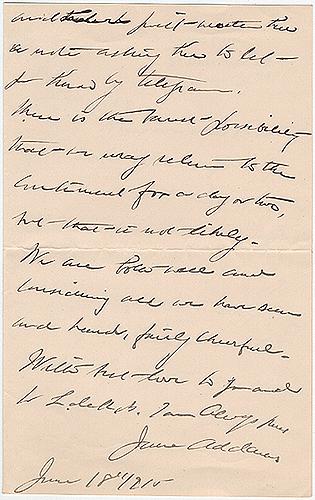 and just wrote thee
a note asking thee to let
know by telegram.
There is the barest possibility
that we may return to the
Continent for a day or two,
but that is not likely.
We are both well and
considering all we have seen
and heard, fairly cheerful.
With best love to you and
I am always yours
Jane Addams
June 18th/15